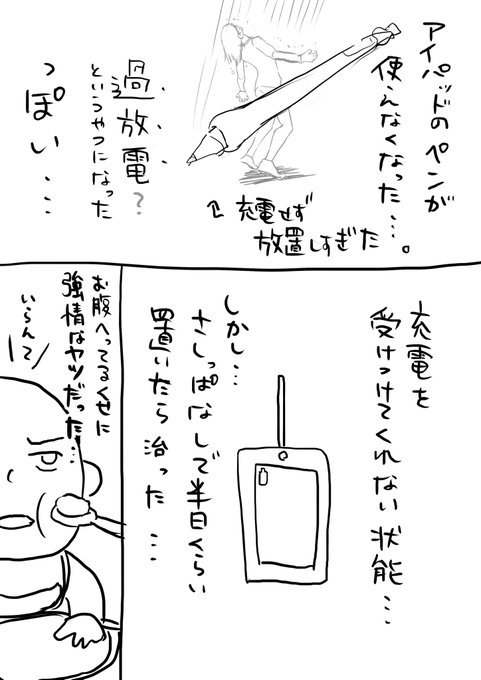 アイパッドのペンが
使えなくなった…。
↑充電せず
放置しすぎた。
過放電?
というやつになった
っぽい…
充電を
受けつけてくれない状態…
しかし…
さしっぱなしで半日くらい
置いたら治った…
お腹へってるくせに
強情なヤツだった…
いらんて